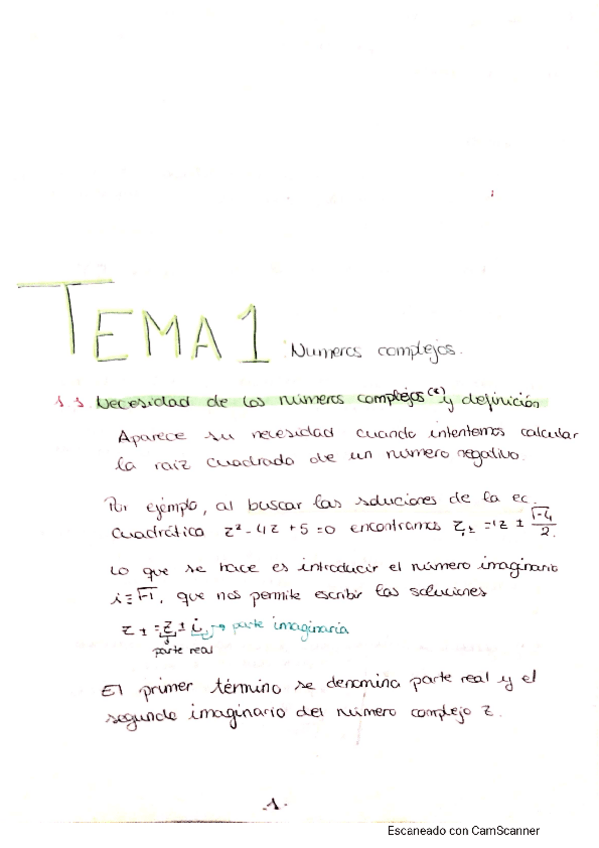 TEMA 1 Números complejos.
1.1. Necesidad de los números complejos (ℂ) y definición
Aparece su necesidad cuando intentemos calcular
la raiz cuadrada de un número negativo.
Por ejemplo, al buscar las soluciones de la ec.
cuadrática z² - 4z + 5 = 0 encontramos z± = 2 ± √-4/2.
Lo que se hace es introducir el número imaginario
i ≡ √-1, que nos permite escribir las soluciones
z± = 2 ± i → parte imaginaria
parte real
El primer término se denomina parte real y el
segundo imaginario del número complejo z.
.1.
Escaneado con CamScanner